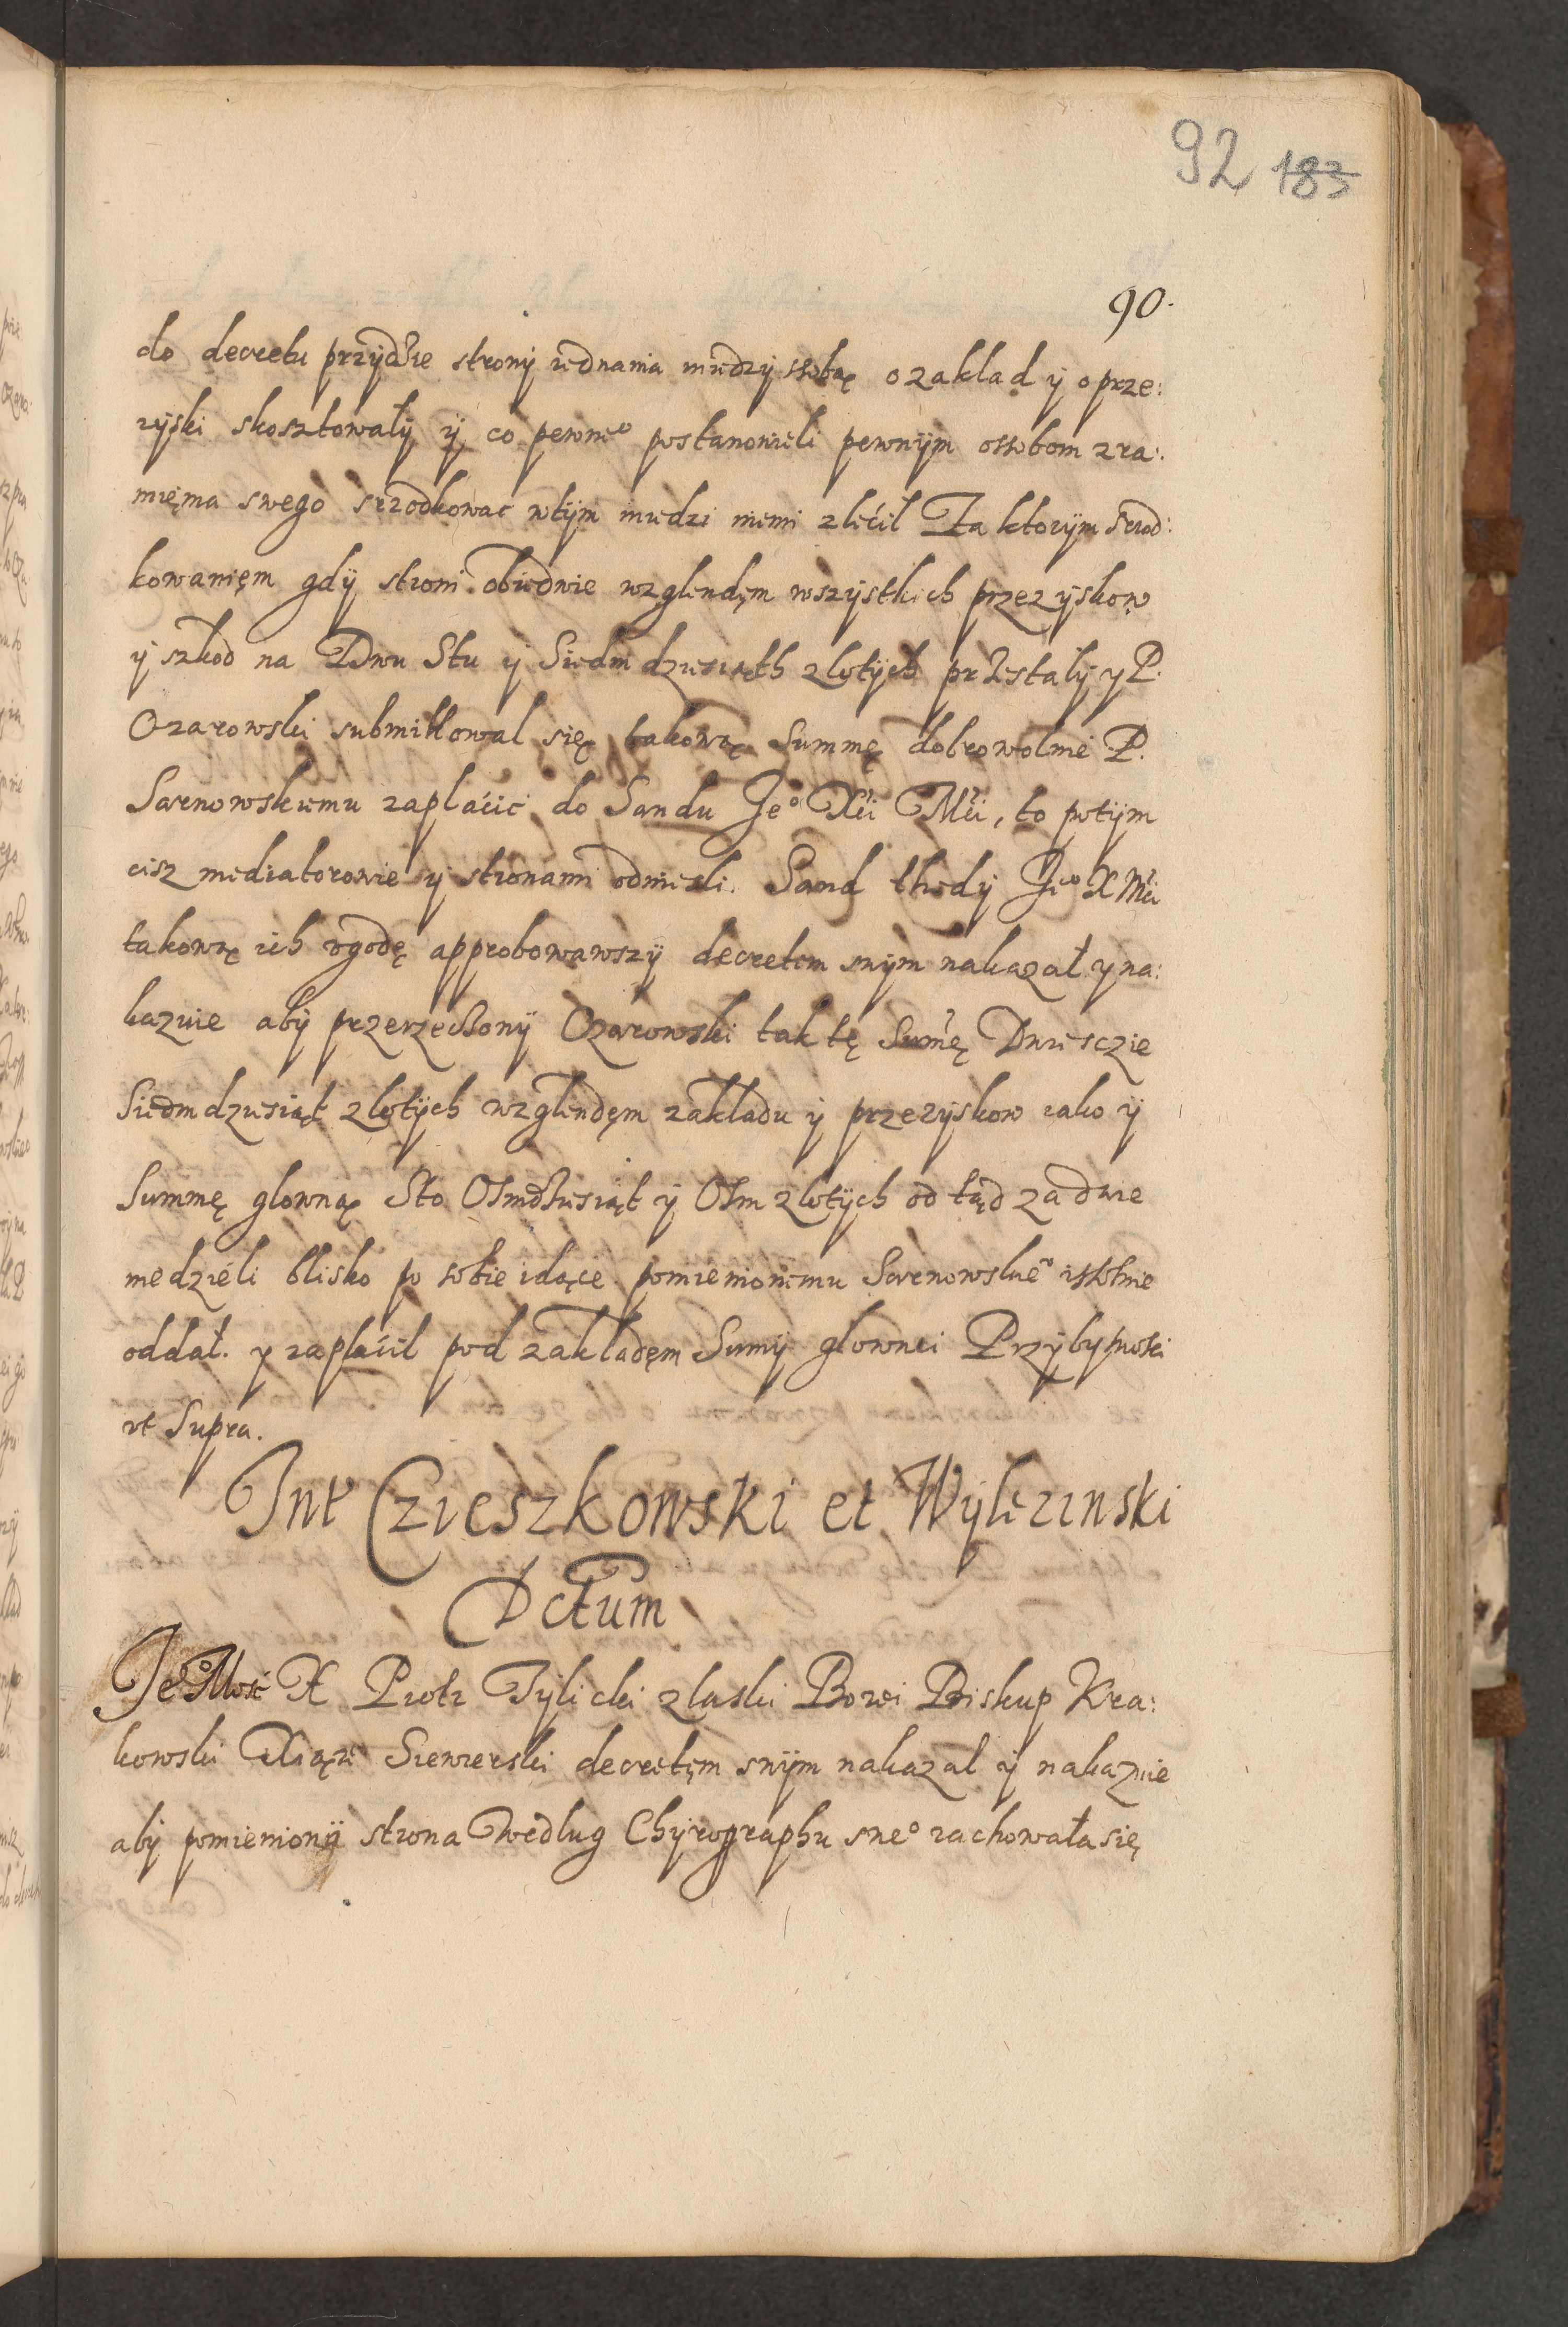 92 183
90.
do decretu przydzie strony iednania miedzy ssobą o zaklad y o prze:
zyski skosztowały y co pewneo postanowili pewnym ossobom z ra:
mięnia swego srzodkowac wtym miedzi niemi zlećił Za ktorym srzod:
kowanięm gdy stroni obiedwie wzglendęm wszystkich przezyskow
y szkod na Dwu Stu y Siedmdziesiąth zlotych przestaly y P.
Ozarowski submittowal się takową Summę dobrowolnie P.
Sarnowskiemu zapłacic do Sandu Jeo Xći Mći, to potym
cisz mediatorowie y stronami odniesli. Sand thedy Jeo X Mći
takową ich vgodę approbowawszy decretem swym nakazał y na:
kazuie aby przerzeczony Ozarowski tak tę Sumę Dwiesczie
Siedmdziesiąt zlotych wzglendęm zakładu y przezyskow iako y
Summę glowną Sto Osmdziesiąt y Osm zlotych od tąd za dwie
niedzieli blisko po sobie idące pomienionemu Sarnowskieo istotnie
oddał. y zapłaćił pod zakładęm Sumy glownei Przybyswski
vt Supra.
Int Czieszkowski et Wyliezinski
Dctum
Jeo Mość X Piotr Tylicki z laski Bozei Biskup Kra:
kowski Xiąze Siewierski decretęm swym nakazal y nakazuie
aby pomieniony strona Wedlug Chyrographu sweo zachowała się